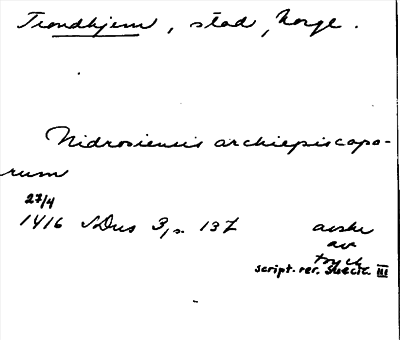 Trondhjem, stad, Norge.
Nidrosiensis archiepiscopo-
rum
27/4
1416 SDns 3, s. 137
avskr
av
tryck
script. rer. svecic. III